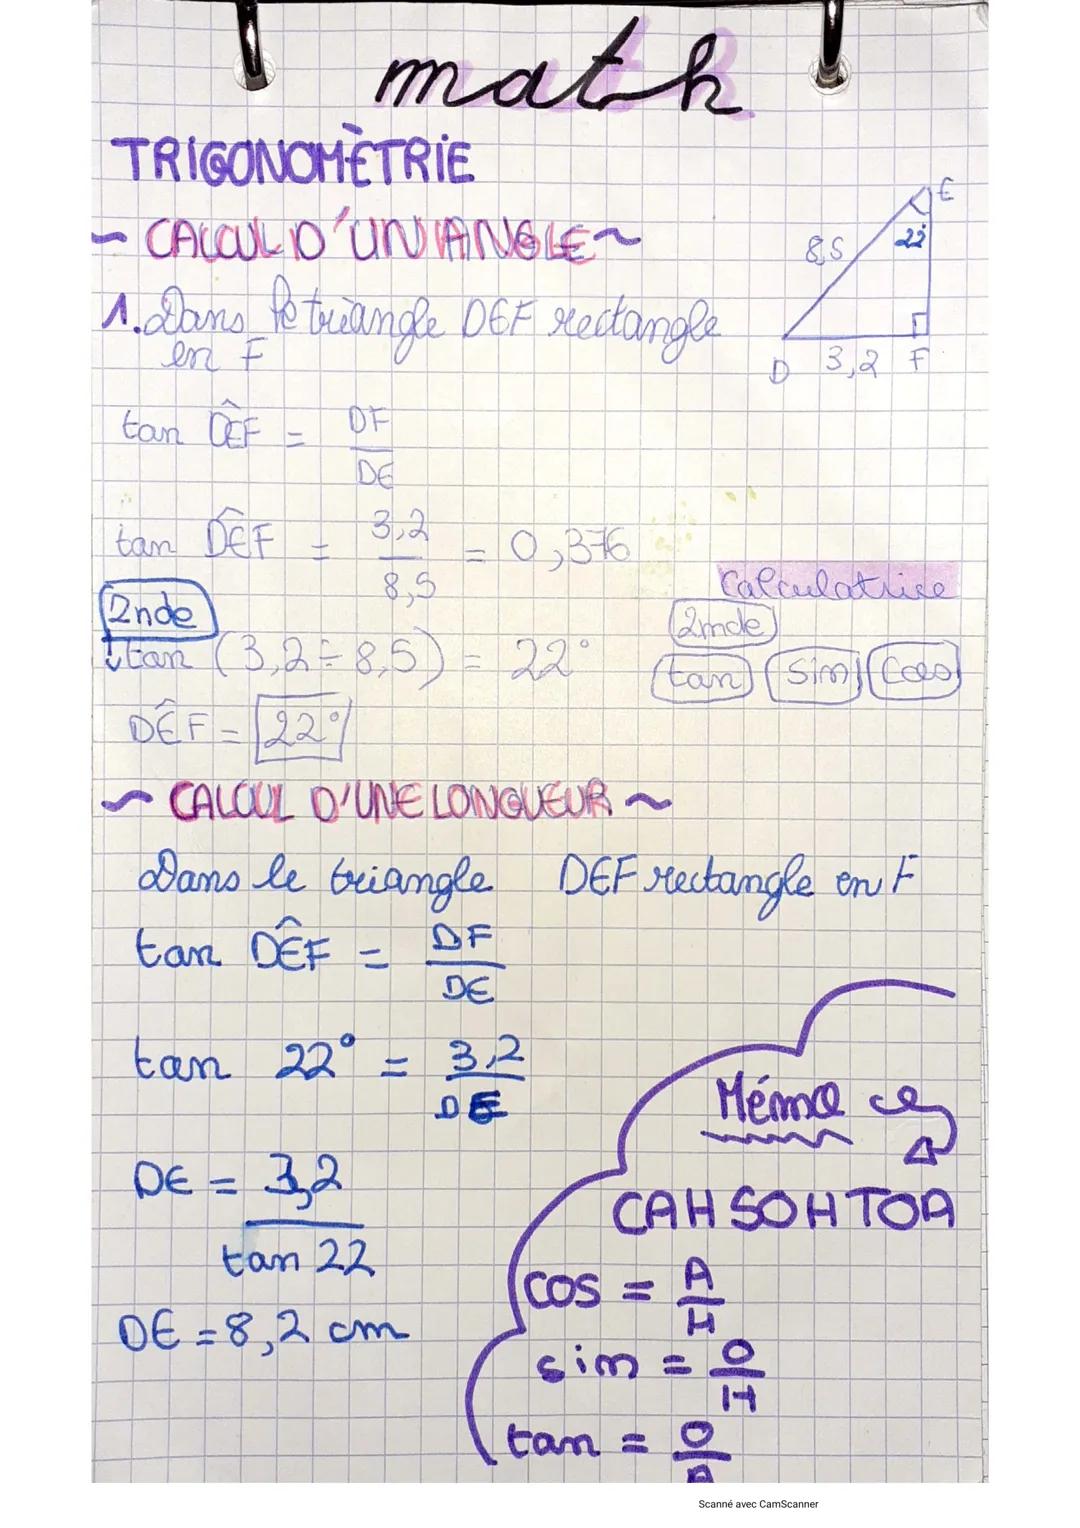 math
TRIGONOMÈTRIE
~ CALCUL D'UN ANGLE ~
E
8,5
22°
D 3,2 F
1. Dans le triangle DEF rectangle
en F
tan DÊF = DF
DE
tan DÊF = 3,2 = 0,376
8,5
Calculatrice
2nde
tan sin cos
2nde
↓tan (3,2 ÷ 8,5) = 22°
DÊF = 22°
~ CALCUL D'UNE LONGUEUR ~
Dans le triangle DEF rectangle en F
tan DÊF = DF
DE
tan 22° = 3,2
DE
DE = 3,2
tan 22
DE = 8,2 cm
Mémo
CAH SOH TOA
cos = A
H
sin = O
H
tan = O
A
Scanné avec CamScanner